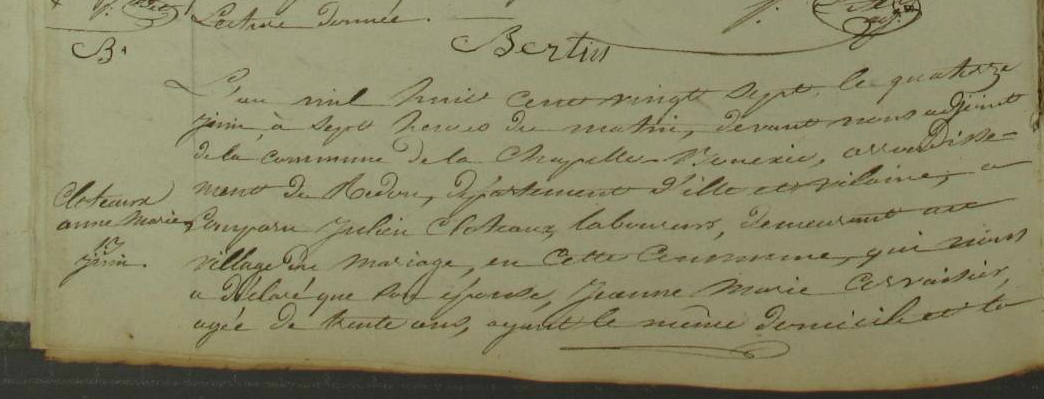 Lecture donnée.
Bertin
B.
L'an mil huit cent vingt sept, le quatorze
juin, à sept heures du matin, devant nous adjoint
de la commune de la Chapelle-Bouexic, arrondisse-
ment de Redon, département d'ille et vilaine, a
Cloteaux
anne Marie
13
juin.
Comparu Julien Cloteaux, laboureur, demeurant au
village du mariage, en cette Commune, qui nous
a déclaré que son épouse, Jeanne Marie
agée de trente ans, ayant le même domicile et le